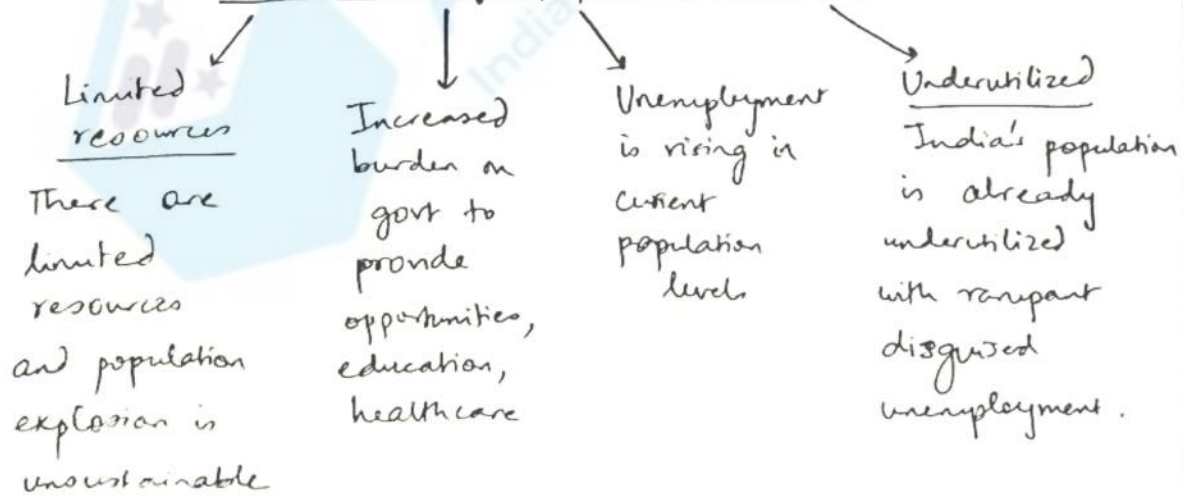 Limited
resources
There are
limited
resources
and population
explosion is
unsustainable
Increased
burden on
govt to
provide
opportunities,
education,
healthcare
Unemployment
is rising in
current
population
levels
Underutilized
India's population
is already
underutilized
with rampant
disguised
unemployment.
India